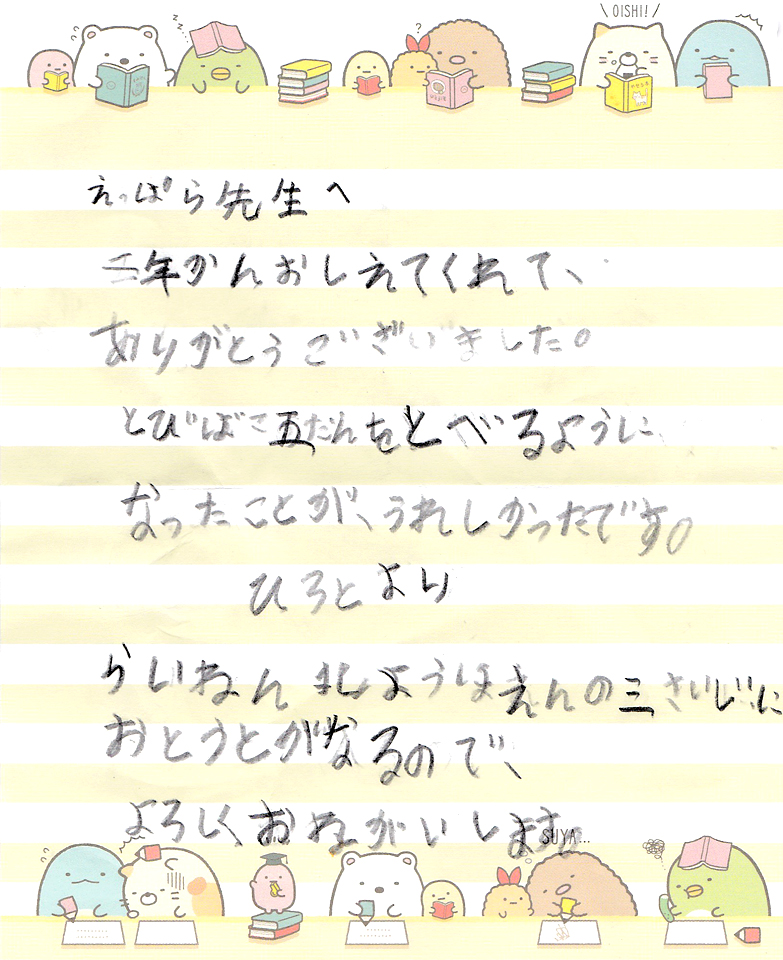 OISHI!
えっぱら先生へ
二年かんおしえてくれて、
ありがとうございました。
とびばこ五だんをとべるように
なったことが、うれしかったです。
ひろとより
らいねん しょうほえんの三さいじに
おとうとがなるので、
よろしくおねがいします。
SUYA...